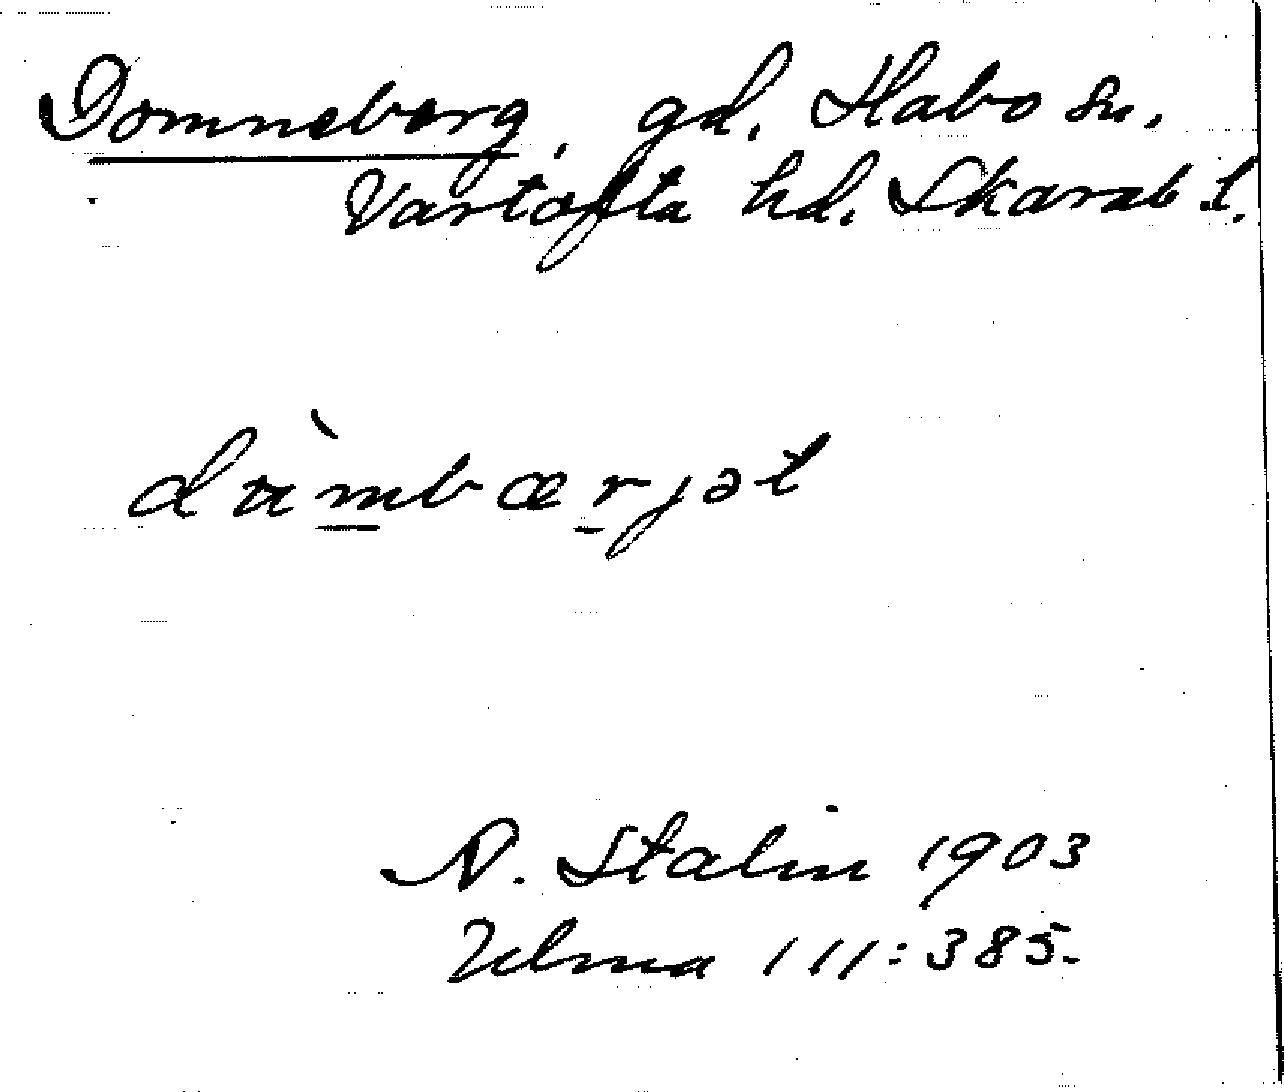 Domneberg, gd. Habo sn.
Vartofta hd. Skarab l.
dàmbærjət
N. Stalin 1903
Ulma 111:385.